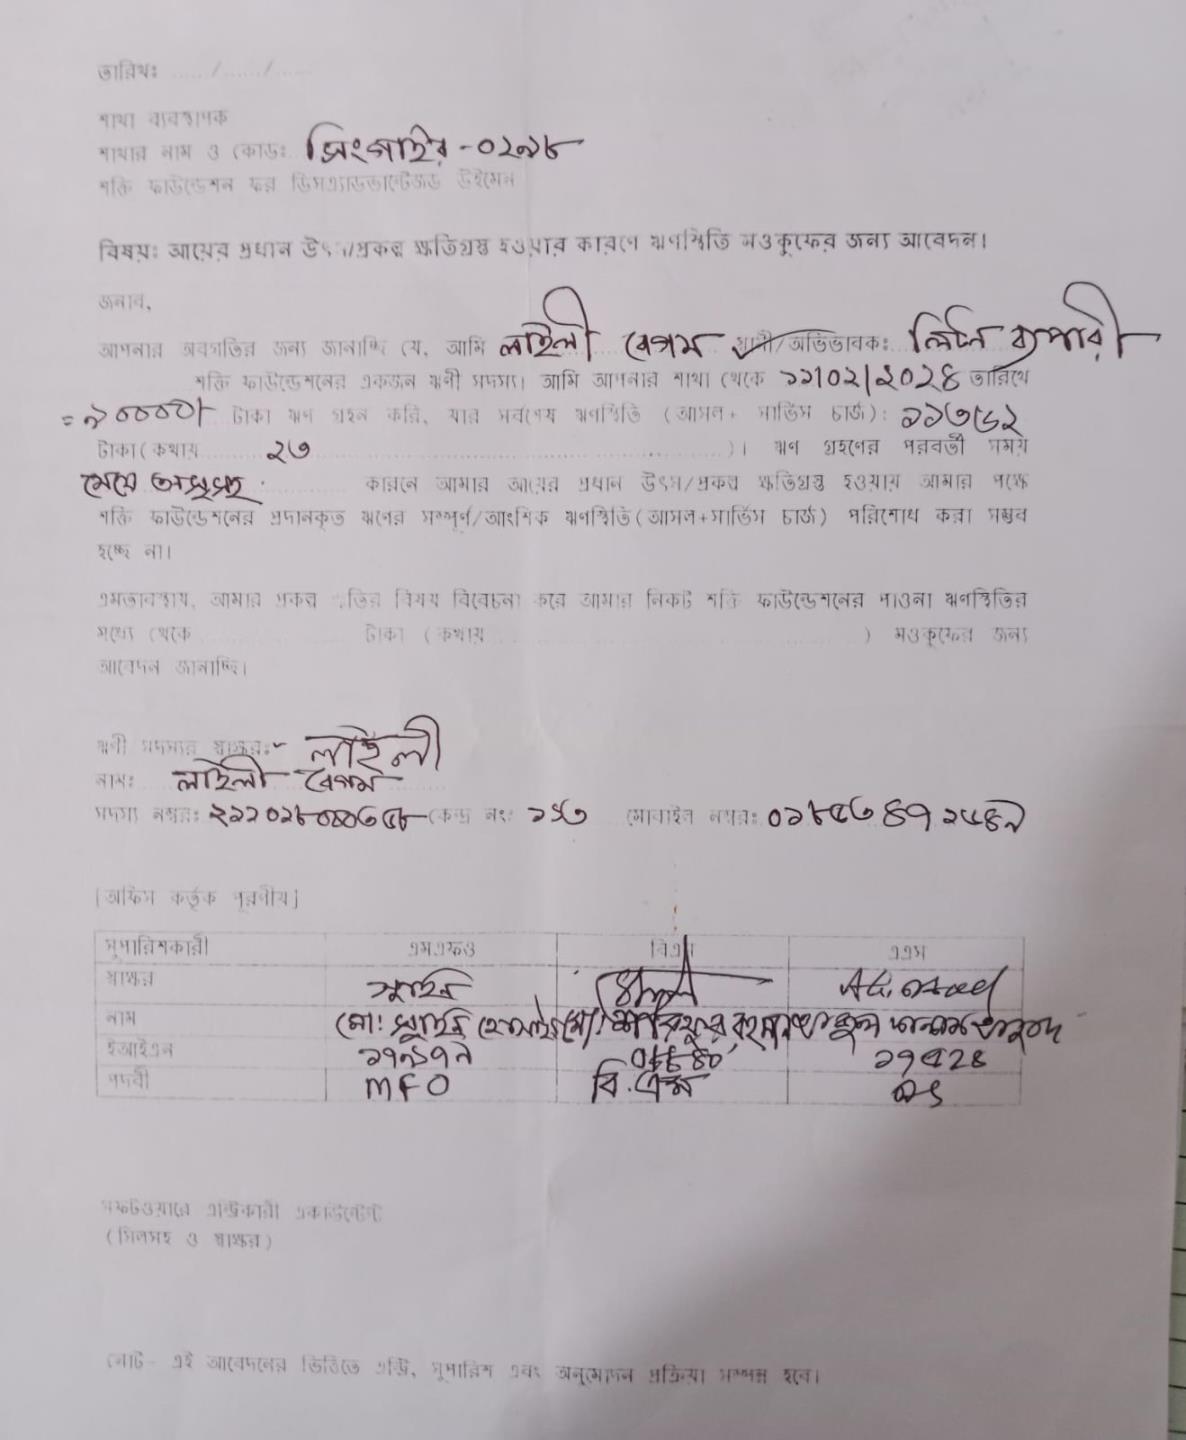 তারিখঃ ....../....../......
শাখা ব্যবস্থাপক
শাখার নাম ও কোডঃ সিংগাইর - ০২৯৮
শক্তি ফাউন্ডেশন ফর ডিসএ্যাডভান্টেজড উইমেন
বিষয়ঃ আয়ের প্রধান উৎস/প্রকল্প ক্ষতিগ্রস্ত হওয়ার কারণে ঋণস্থিতি মওকুফের জন্য আবেদন।
জনাব,
আপনার অবগতির জন্য জানাচ্ছি যে, আমি লাইলী বেগম স্বামী/অভিভাবকঃ লিটন ব্যপারী
শক্তি ফাউন্ডেশনের একজন ঋণী সদস্য। আমি আপনার শাখা থেকে ১১/০২/২০২৪ তারিখে
= ৯০০০০/ টাকা ঋণ গ্রহন করি, যার সর্বশেষ ঋণস্থিতি (আসল+ সার্ভিস চার্জ):
টাকা(কথায় ২৩ )। ঋণ গ্রহণের পরবর্তী সময়
মেয়ে অসুস্থ কারনে আমার আয়ের প্রধান উৎস/প্রকল্প ক্ষতিগ্রস্ত হওয়ায় আমার পক্ষে
শক্তি ফাউন্ডেশনের প্রদানকৃত ঋণের সম্পূর্ণ/আংশিক ঋণস্থিতি(আসল+সার্ভিস চার্জ) পরিশোধ করা সম্ভব
হচ্ছে না।
এমতাবস্থায়, আমার প্রকল্প ক্ষতির বিষয় বিবেচনা করে আমার নিকট শক্তি ফাউন্ডেশনের পাওনা ঋণস্থিতির
মধ্যে থেকে টাকা (কথায় ) মওকুফের জন্য
আবেদন জানাচ্ছি।
ঋণী সদস্যর স্বাক্ষরঃ- লাইলী
নামঃ লাইলী বেগম
সদস্য নম্বরঃ কেন্দ্র নং: মোবাইল নম্বরঃ
[অফিস কর্তৃক পূরণীয়]
সুপারিশকারী এমএফও বিএম এএস
স্বাক্ষর
নাম মো:
ইআইএন ১৭৯১৭৯ ১৭৫২৪
পদবী MFO বি.এম
সফটওয়ারে এন্ট্রিকারী একাউন্টেন্ট
(সিলসহ ও স্বাক্ষর)
নোট- এই আবেদনের ভিত্তিতে এন্ট্রি, সুপারিশ এবং অনুমোদন প্রক্রিয়া সম্পন্ন হবে।